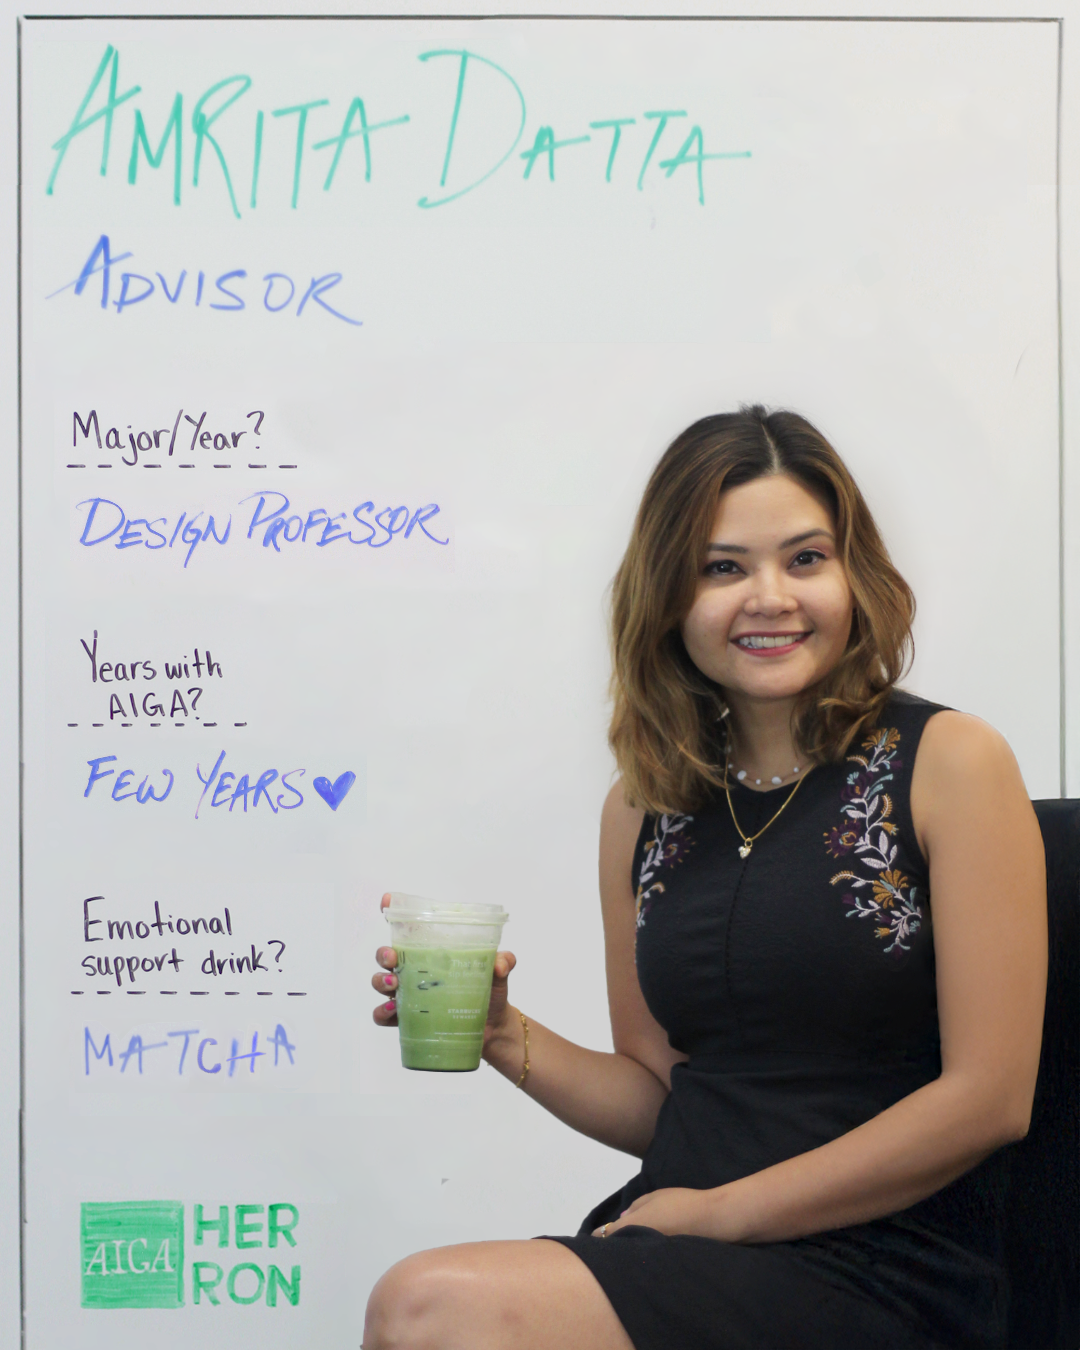 AMRITA DATTA
ADVISOR
Major/Year?
DESIGN PROFESSOR
Years with
AIGA?
FEW YEARS
Emotional
support drink?
MATCHA
AIGA
HER
RON